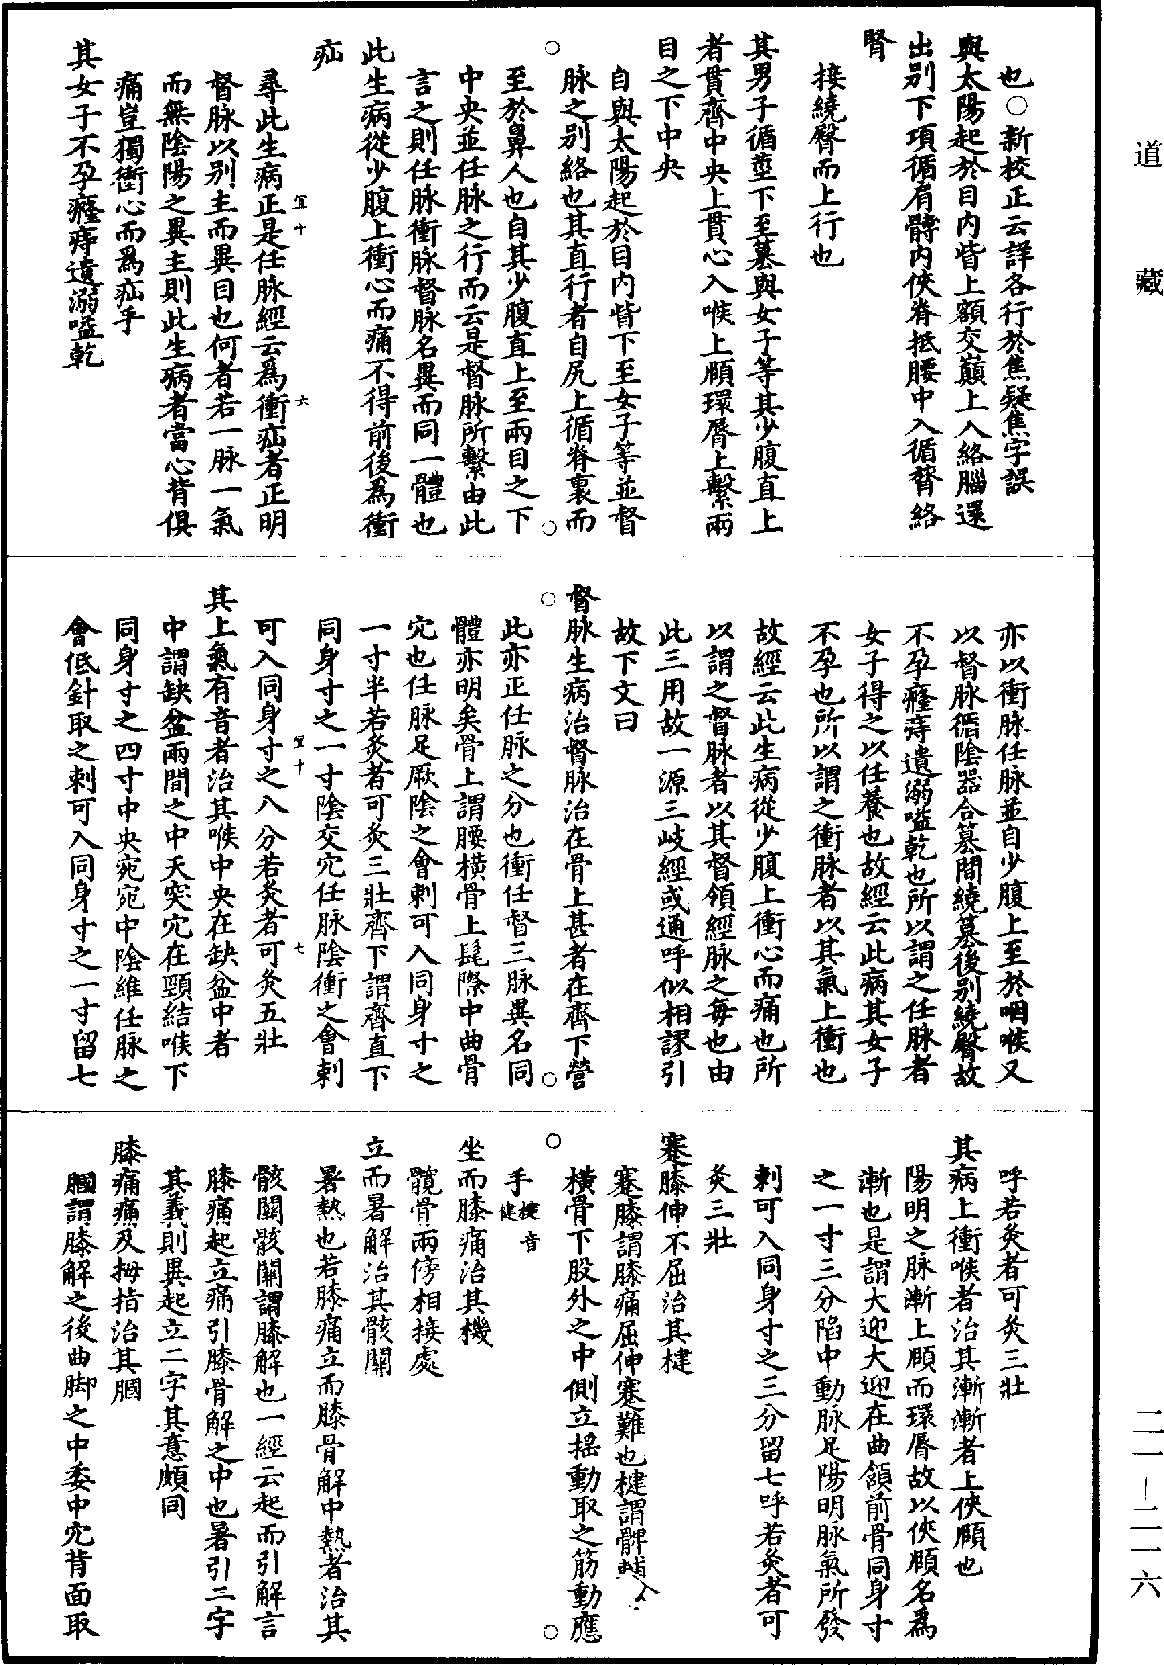 道藏
也○新校正云詳各行於焦疑焦字誤
與太陽起於目內眥上額交巔上入絡腦還
出别下項循肩髆内俠脊抵腰中入循膂絡
腎
接繞臀而上行也
其男子循莖下至墓與女子等其少腹直上
者貫齊中央上貫心入喉上頤環脣上繫兩
目之下中央
自與太陽起於目内眥下至女子等並督
脉之别絡也其直行者自尻上循脊裏而
至於鼻人也自其少腹直上至兩目之下
中央並任脉之行而云是督脉所繫由此
言之則任脉衝脉督脉名異而同一體也
此生病從少腹上衝心而痛不得前後為衝
疝
尋此生病正是任脉經云爲衝疝者正明
督脉以别主而異目也何者若一脉一氣
而無陰陽之異主則此生病者當心背俱
痛豈獨衝心而為疝乎
其女子不孕癃痔遺溺嗌乾
宜十
六
亦以衝脉任脉並自少腹上至於咽喉又
以督脉循陰器合篡間繞墓後别繞臀故
不孕癃痔遺溺嗌乾也所以謂之任脉者
女子得之以任養也故經云此病其女子
不孕也所以謂之衝脉者以其氣上衝也
故經云此生病從少腹上衝心而痛也所
以謂之督脉者以其督領經脉之每也由
此三用故一源三岐經或通呼似相謬引
故下文曰
督脉生病治督脉治在骨上甚者在齊下營
此亦正任脉之分也衝任督三脉異名同
體亦明矣骨上謂腰橫骨上毛際中曲骨
穴也任脉足厥陰之會刺可入同身寸之
一寸半若灸者可灸三壯齊下謂齊直下
同身寸之一寸陰交穴任脉陰衝之會刺
可入同身寸之八分若灸者可灸五壯
其上氣有音者治其喉中央在缺盆中者
中謂缺盆兩間之中天突穴在頸結喉下
同身寸之四寸中央宛宛中陰維任脉之
會低針取之刺可入同身寸之一寸留七
宜十
七
呼若灸者可灸三壯
其病上衝喉者治其漸漸者上俠頤也
陽明之脉漸上頤而環脣故以俠頤名為
漸也是謂大迎大迎在曲頷前骨同身寸
之一寸三分陷中動脉足陽明脉氣所發
刺可入同身寸之三分留七呼若灸者可
灸三壯
蹇膝伸不屈治其楗
蹇膝謂膝痛屈伸蹇難也楗謂髀輔
橫骨下股外之中側立揺動取之筋動應
手楗音健
坐而膝痛治其機
髖骨兩傍相接處
立而暑解治其骸關
暑熱也若膝痛立而膝骨解中熱者治其
骸關骸關謂膝解也一經云起而引解言
膝痛起立痛引膝骨解之中也暑引二字
其義則異起立二字其意頗同
膝痛痛及拇指治其膕
膕謂膝解之後曲脚之中委中穴背面取
二一－二一六